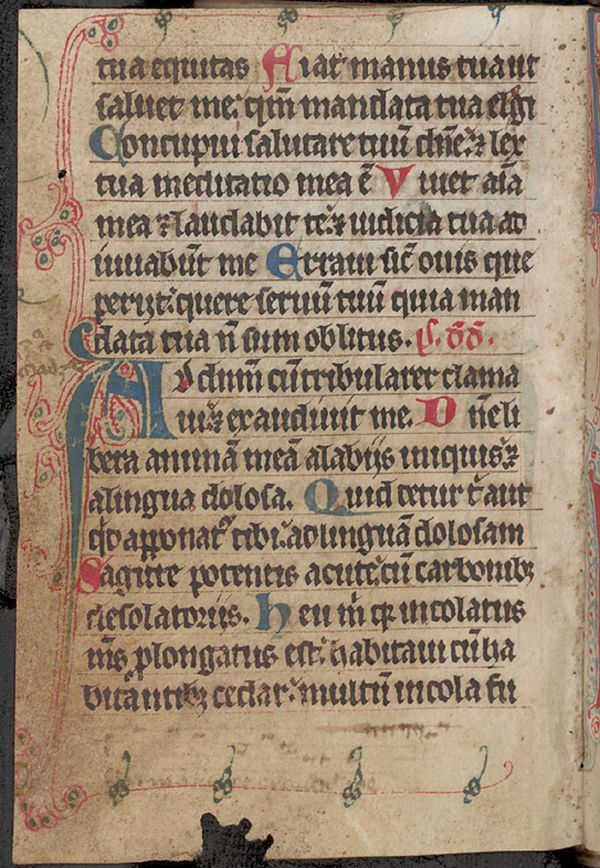 tua equitas Fiat manus tua ut
saluet me: qm̄ mandata tua elegi
Concupiui salutare tuū dn̄e: ⁊ lex
tua meditatio mea ē Viuet aīa
mea ⁊ laudabit te: ⁊ iudicia tua ad
iuuabūt me Erraui sic̄ ouis que
perijt: quere seruū tuū quia man
data tua n̄ sum oblitus.
Ad dn̄m cū tribularer clama
ui: ⁊ exaudiuit me. Dn̄e li
bera animā meā a labijs iniquis: ⁊
a lingua dolosa. Quid detur t̄ aut
qd̄ apponat᷑ tibi: ad linguā dolosam
Sagitte potentis acute: cū carbonibꝫ
desolatorijs. Heu m̄ qꝛ incolatus
ms̄ ꝓlongatus est: habitaui cū ha
bitātibꝫ cedar: multū incola fu